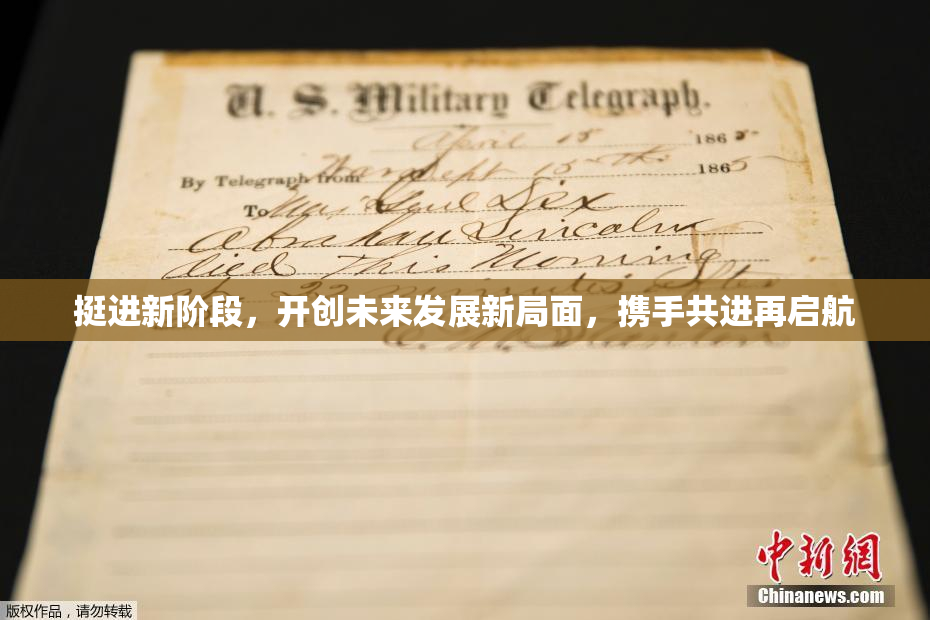 U. S. Military Telegraph.
April 15 1865
By Telegraph from War Dept 15th 1865
To Maj Genl Dix
Abraham Lincoln
died This Morning
at 22 minutes after
挺进新阶段，开创未来发展新局面，携手共进再启航
E. M. Stanton
中新网
Chinanews.com
版权作品，请勿转载